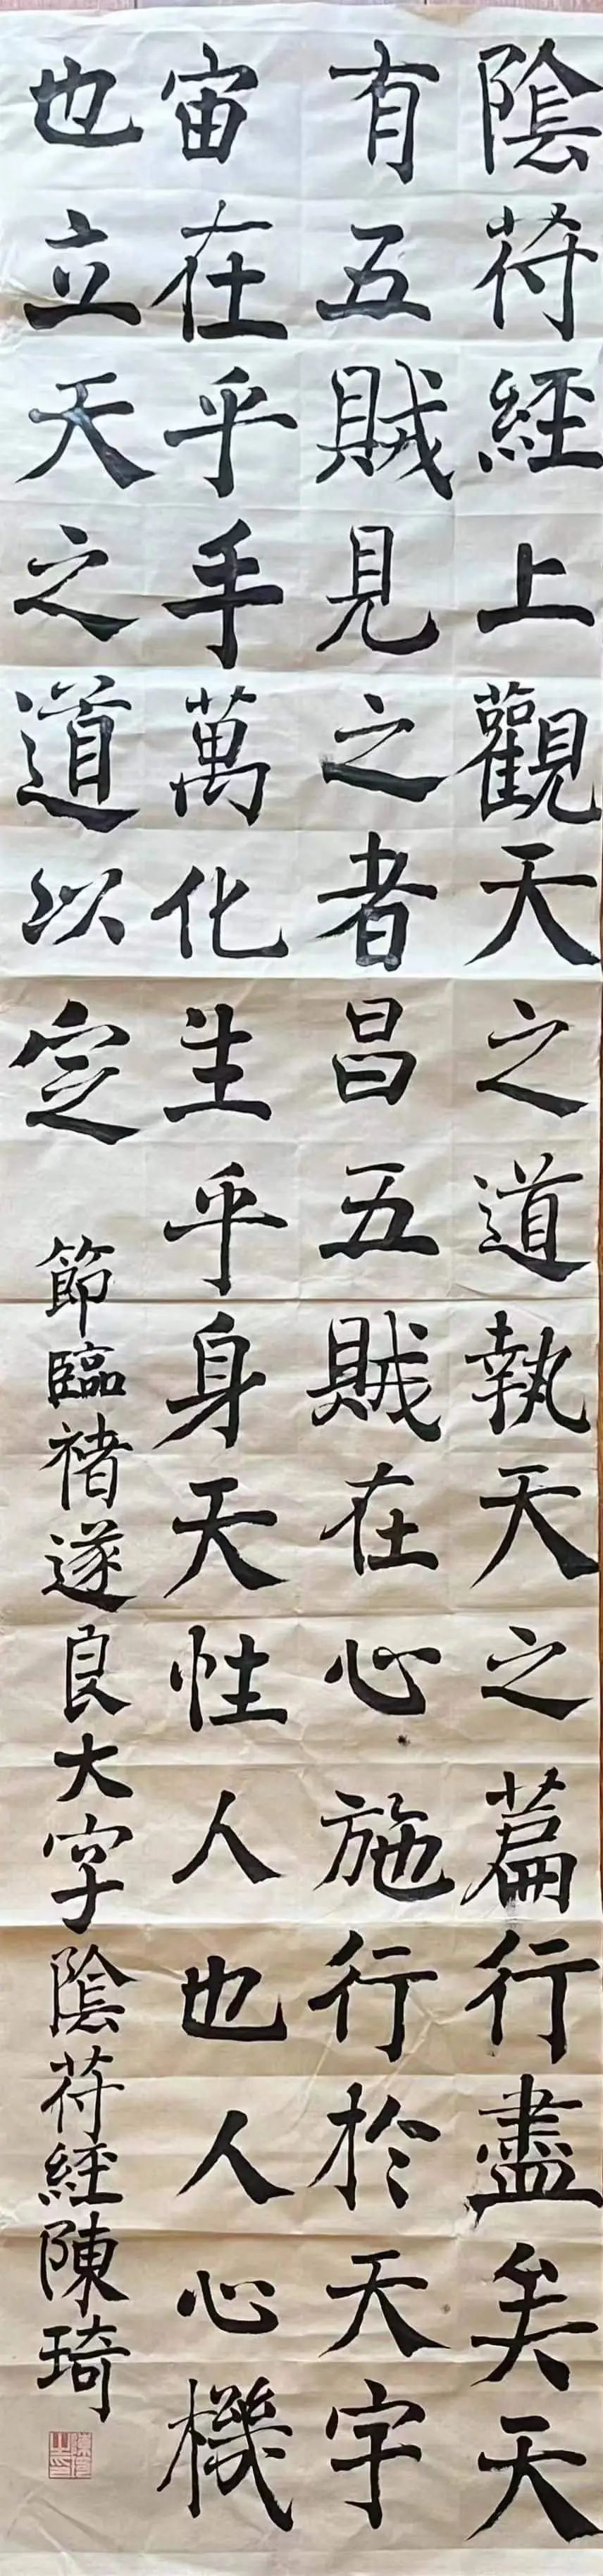 陰符經上觀天之道執天之篇行盡矣天
有五賊見之者昌五賊在心施行於天宇
宙在乎手萬化生乎身天性人也人心機
也立天之道以定
節臨褚遂良大字陰符經陳琦